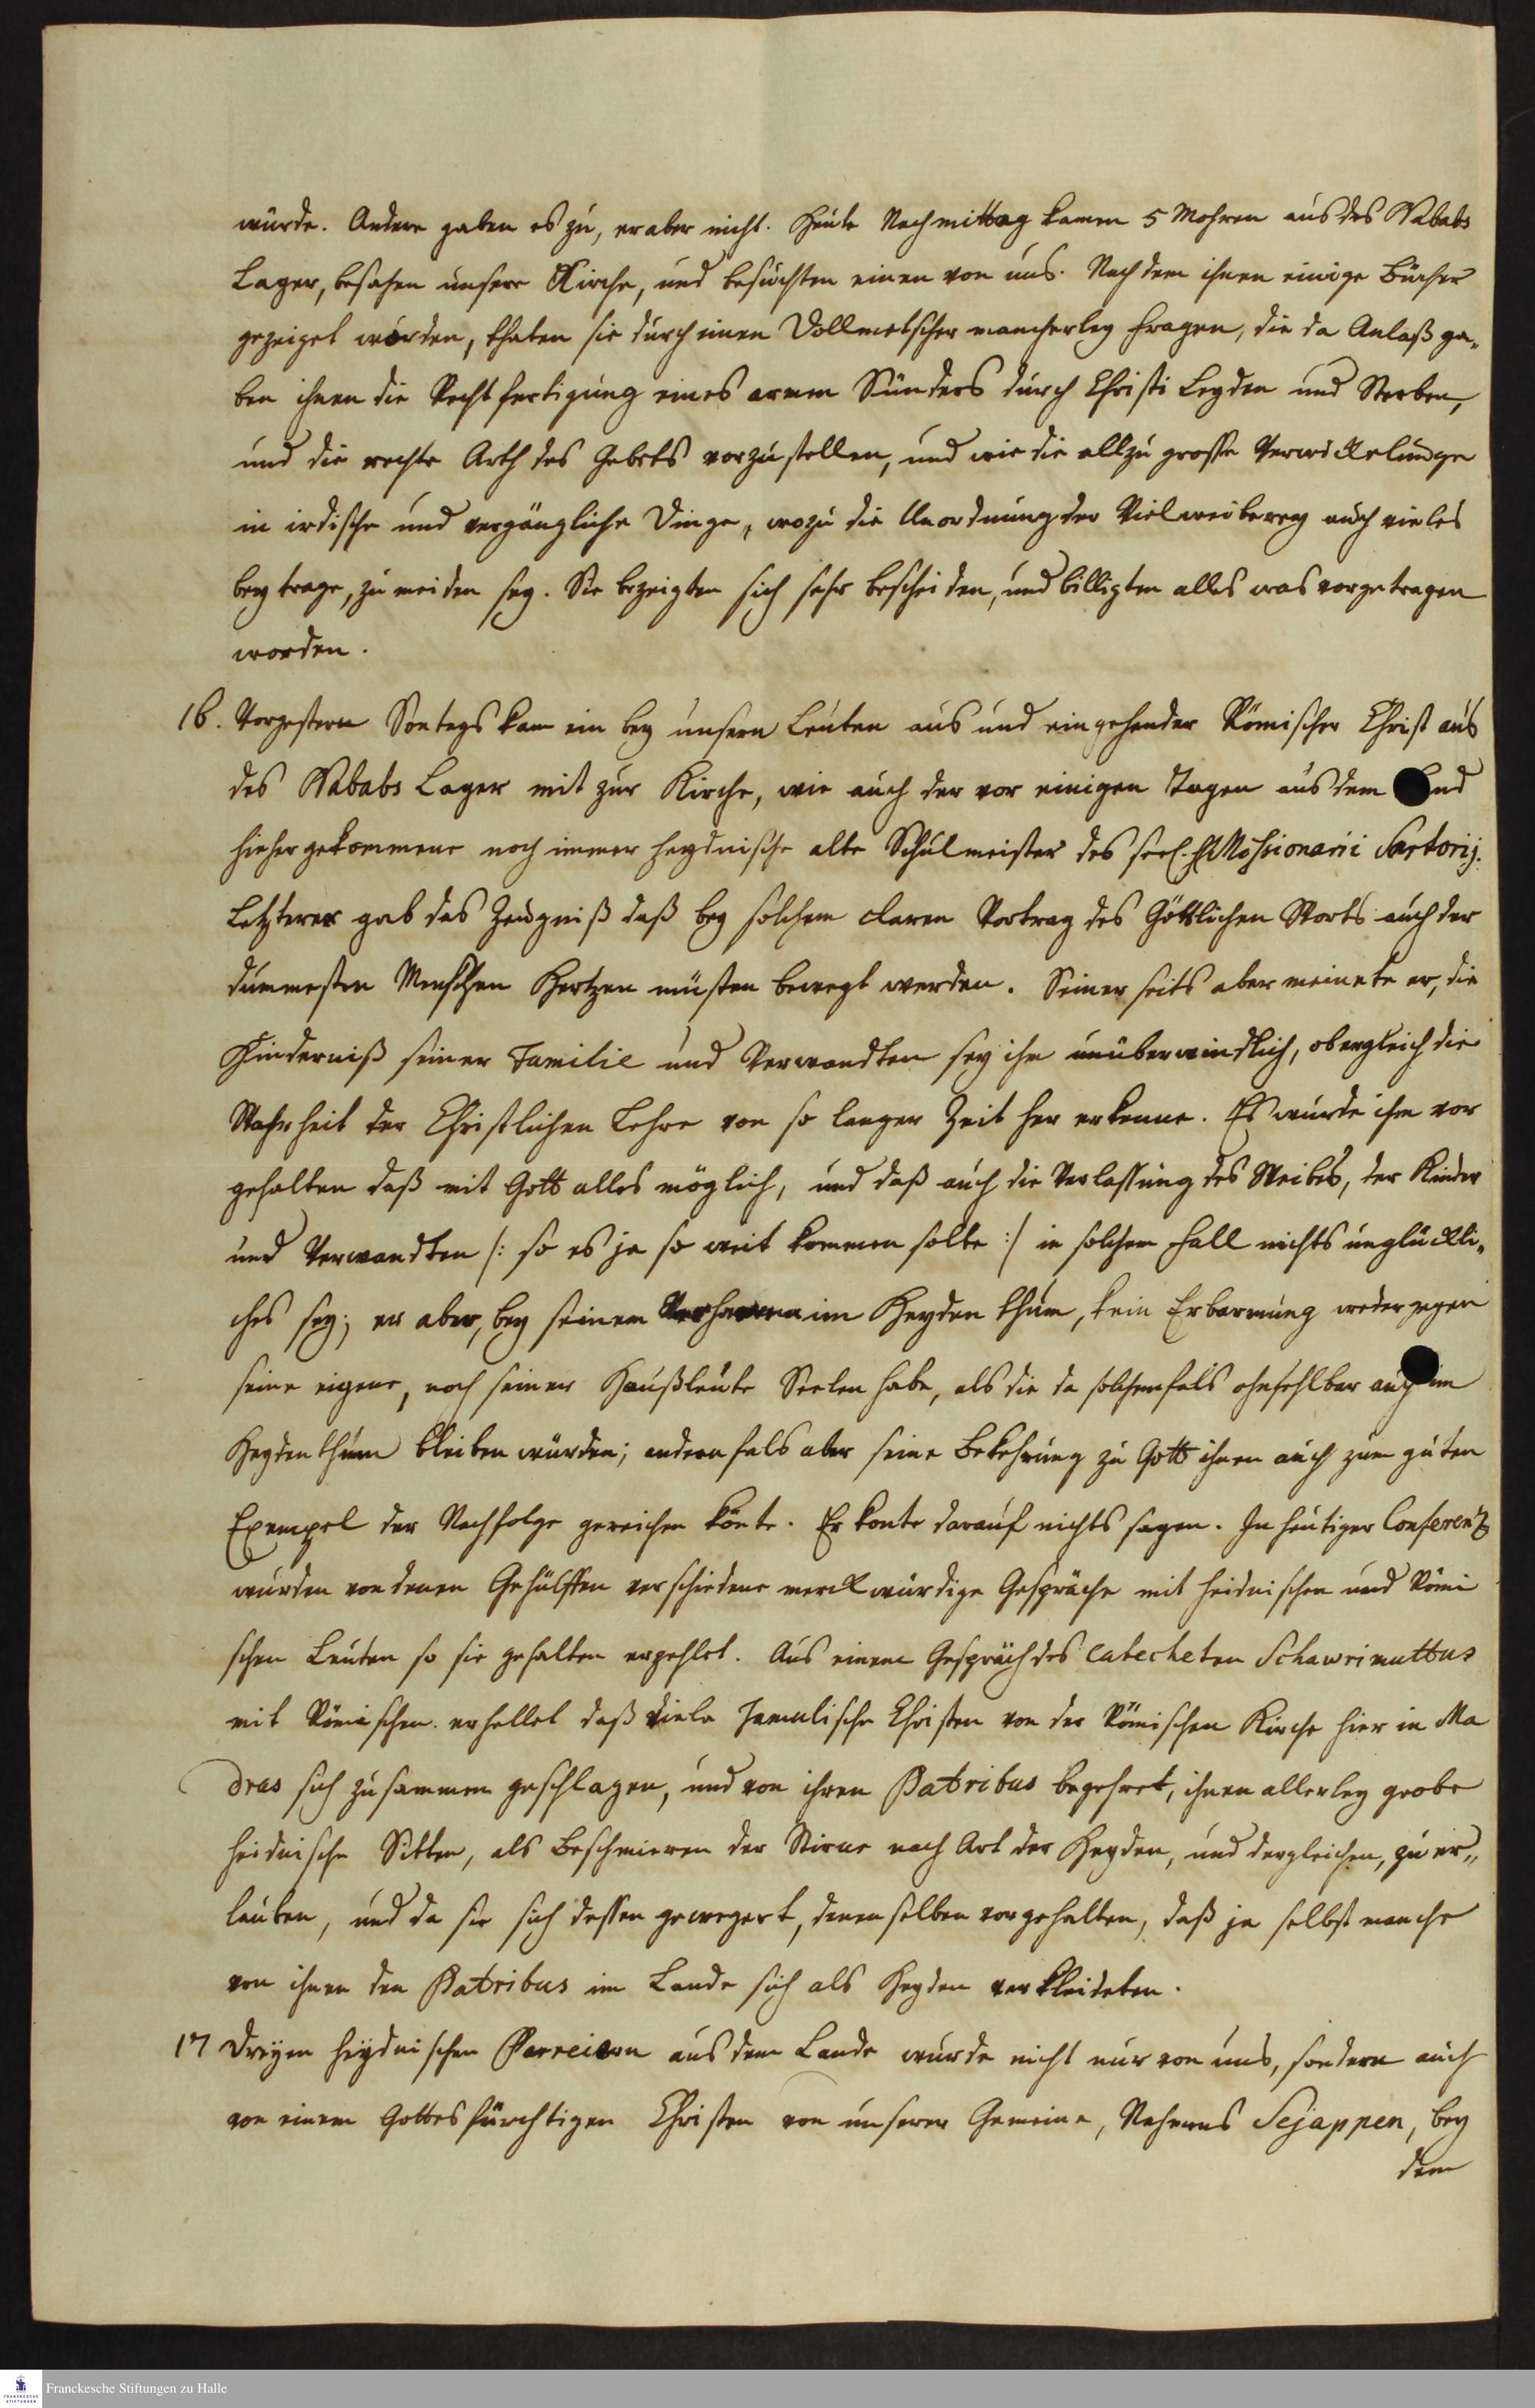 würde. Andere gaben es zu, er aber nicht. Heute Nachmittag kamen 5 Mohren aus des Nababs
Lager, besahen unsere Kirche, und besuchten einen von uns. Nach dem ihnen einige Bücher
gezeiget worden, thaten sie durch einen Dollmetscher mancherley Fragen, die da Anlaß ga„
ben ihnen die Rechtfertigung eines armen Sünders durch Christi Leyden und Sterben,
und die rechte Arth des Gebets vorzustellen, und wie die allzu grosse Verwickelunge
in irdische und vergängliche Dinge, wozu die Unordnung der Vielweiberey auch vieles
beytrage, zu meiden sey. Sie bezeigten sich sehr bescheiden, und billigten alles was vorgetragen
worden.
16. Vorgestern Sontags kam ein bey unsern Leuten aus und eingehender Römischer Christ aus
des Nababs Lager mit zur Kirche, wie auch der vor einigen Tagen aus dem Land
hieher gekommene noch immer heydnische alte Schulmeister des seel. H. Missionarii Sartorij.
Letzterer gab das Zeugniß daß bey solchem claren Vortrag des Göttlichen Worts auch der
dummesten Menschen Hertzen müsten bewegt werden. Seiner seits aber meinete er, die
Hinderniß seiner Familie und Verwandten sey ihm unüberwindlich, ob er gleich die
Wahrheit der Christlichen Lehre von so langer Zeit her erkenne. Es wurde ihm vor
gehalten daß mit Gott alles möglich, und daß auch die Verlassung des Weibes, der Kinder
und Verwandten /: so es ja so weit kommen solte :/ in solchem Fall nichts unglückli„
ches sey; er aber, bey seinem Verharren im Heydenthum, kein Erbarmung weder gegen
seine eigene, noch seiner Haußleute Seelen habe, als die da solchenfals ohnfehlbar auch im
Heydenthum bleiben würden; andern fals aber seine Bekehrung zu Gott ihnen auch zum guten
Exempel der Nachfolge gereichen könte. Er konte darauf nichts sagen. In heutiger Conferentz
wurden von denen Gehülffen verschiedene merckwürdige Gespräche mit heidnischen und Römi
schen Leuten so sie gehalten erzehlet. Aus einem Gespräch des Catecheten Schawrimuttus
mit Römischen erhellet daß viele Tamulische Christen von der Römischen Kirche hier in Ma
dras sich zusammen geschlagen, und von ihren Patribus begehret, ihnen allerley grobe
heidnische Sitten, als Beschmieren der Stirne nach Art der Heyden, und dergleichen, zu er„
lauben, und da sie sich dessen gewegert, denenselben vorgehalten, daß ja selbst manche
von ihnen den Patribus im Lande sich als Heyden verkleideten.
17 Dreyen heydnischen Parreiern aus dem Lande wurde nicht nur von uns, sondern auch
von einem Gottesfürchtigen Christen von unserer Gemeine, Nahmens Sejappen, bey
dem
Franckesche Stiftungen zu Halle